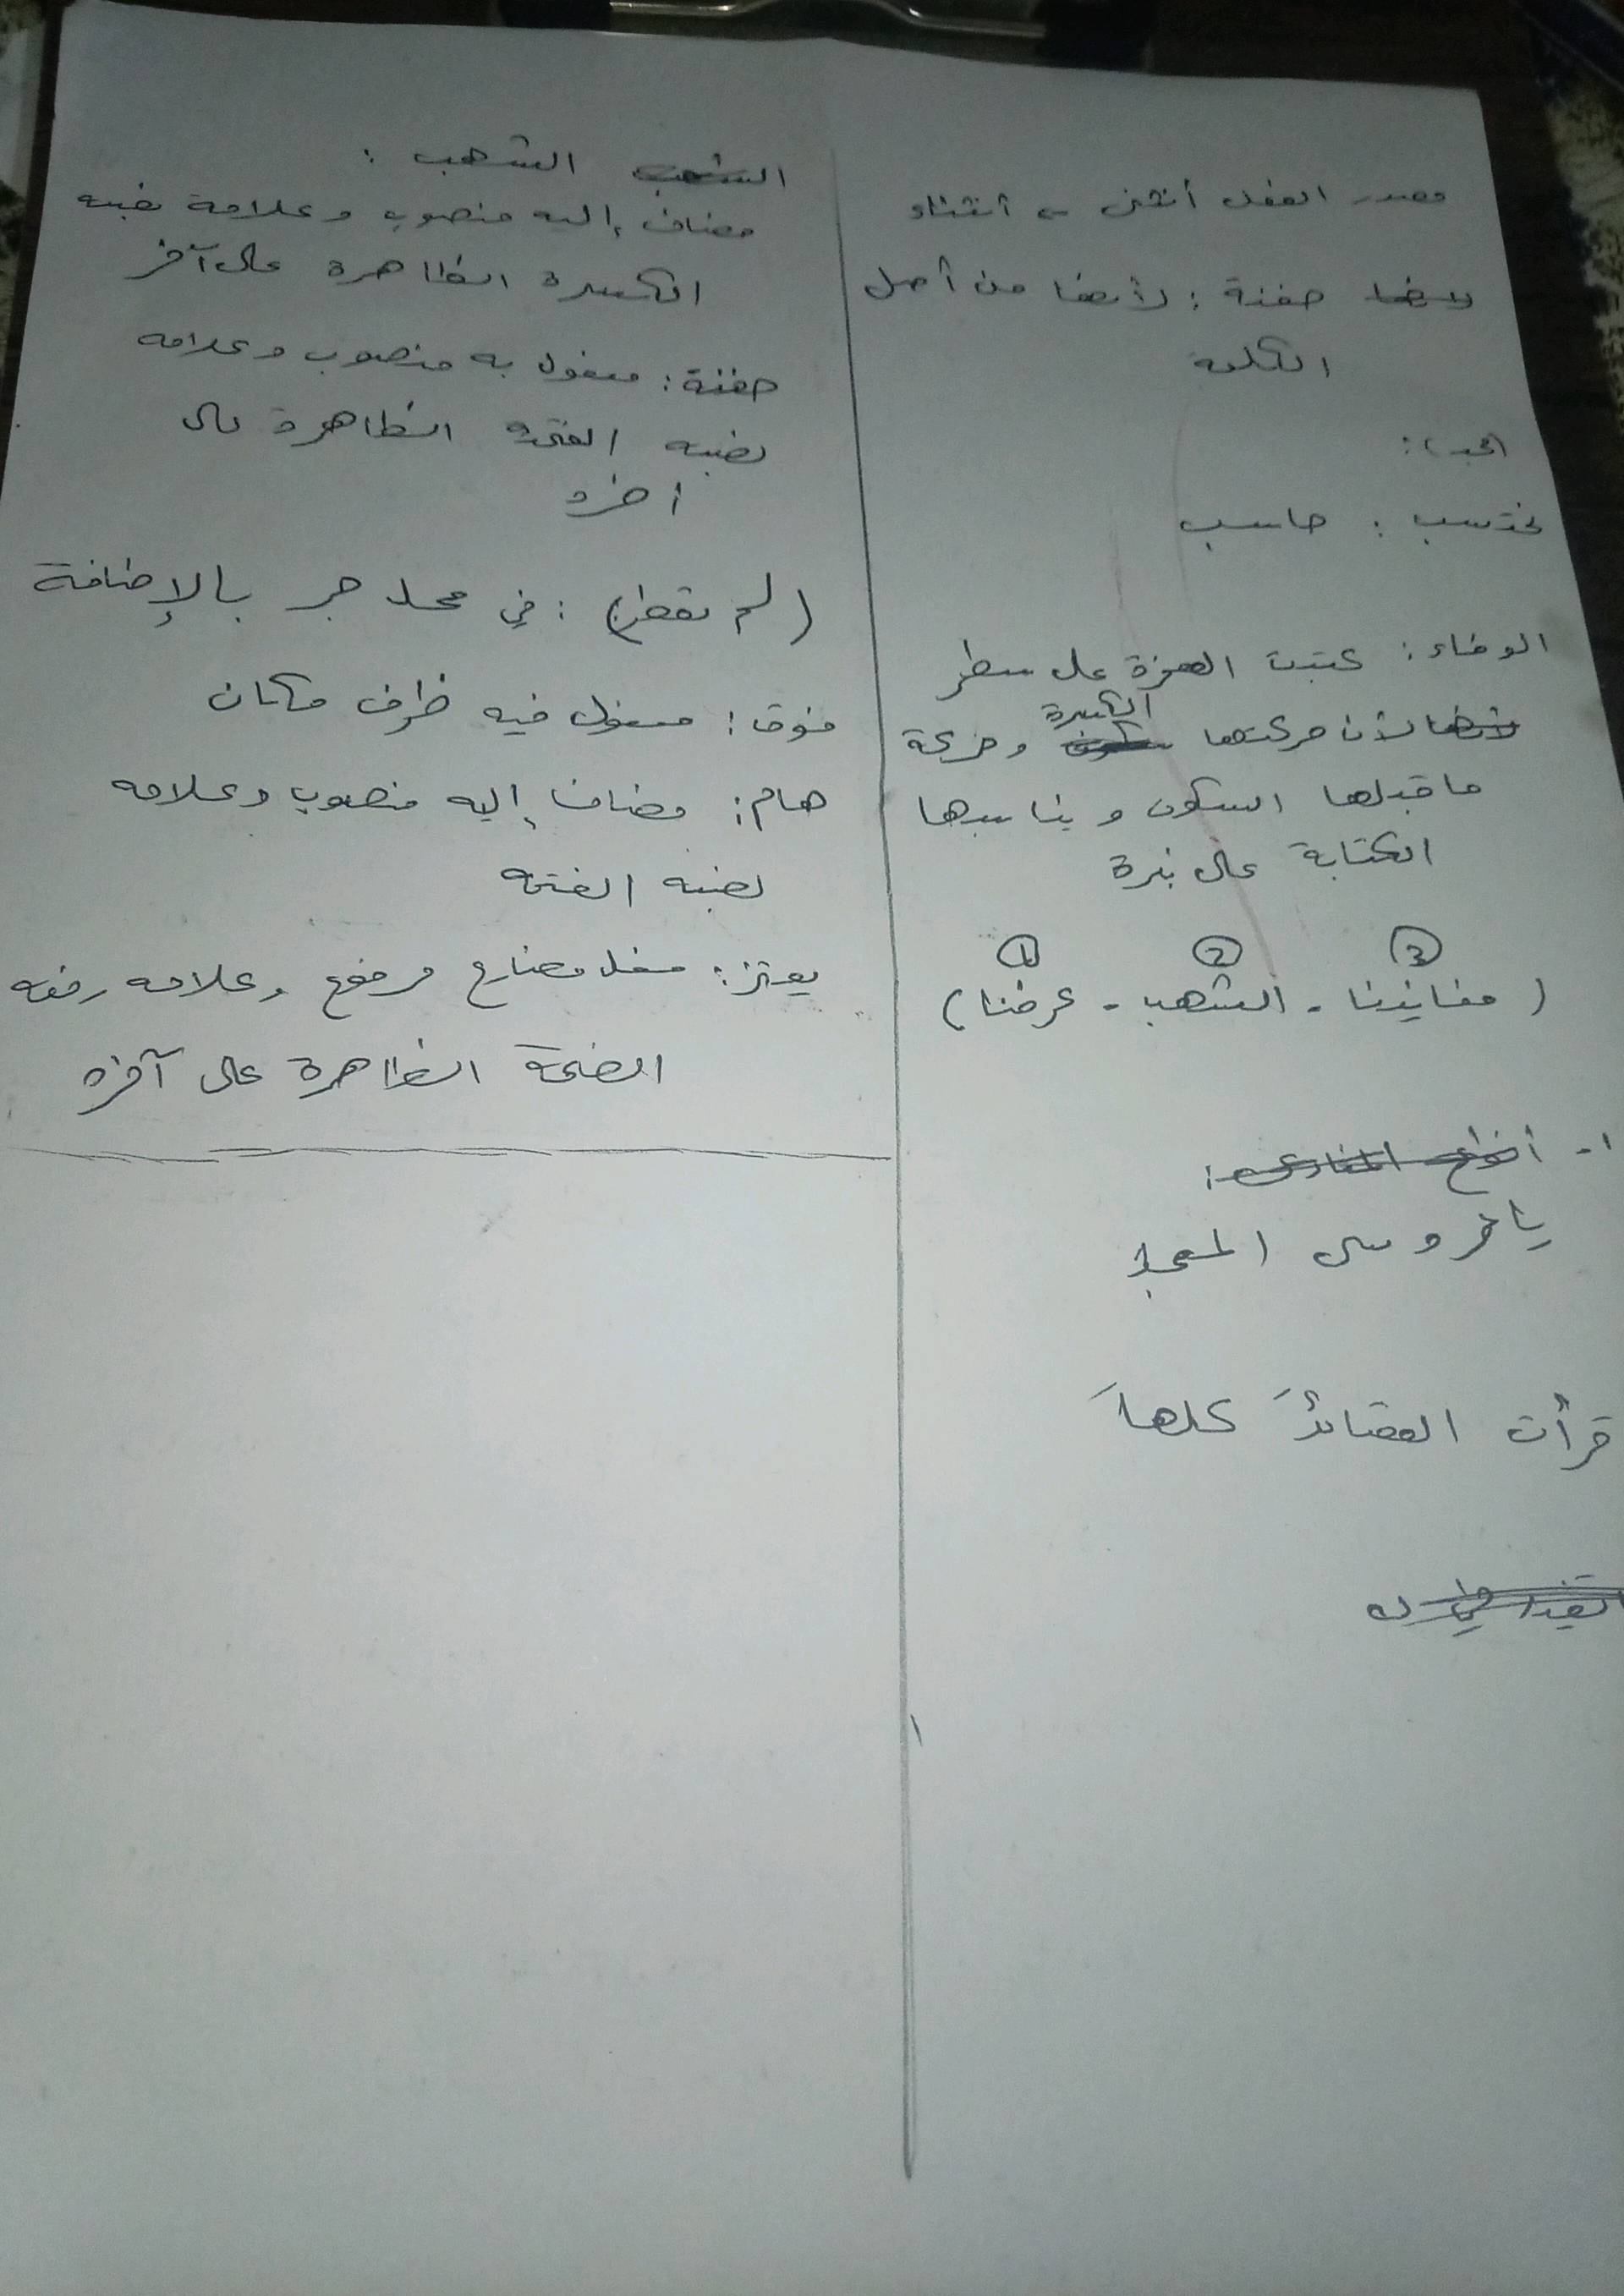 مصدر الفعل أنثنى ← انثناء
حفنة : لأنها من أصل
الكلمة
تحتسب : حاسب
الوفاء : كتبت الهمزة على سطر
لأن حركتها الكسرة وحركة
ما قبلها السكون ويناسبها
الكتابة على نبرة
③ ② ①
( مفانيدنا - الشهب - عرفنا )
١-
يا عروس المجد
قرأت القصائدَ كلهاَ
الشهب :
مضاف إليه منصوب وعلامة نصبه
الكسرة الظاهرة على آخر
حفنة : مفعول به منصوب وعلامه
نصبه الفتحة الظاهرة على
أخره
( لم تفطن ) : في محل جر بالإضافة
فوق : مفعول فيه ظرف مكان
هام : مضاف إليه منصوب وعلامه
نصبه الفتحه
يعتز : فعل مضارع مرفوع وعلامه رفعه
الضمة الظاهرة على آخره